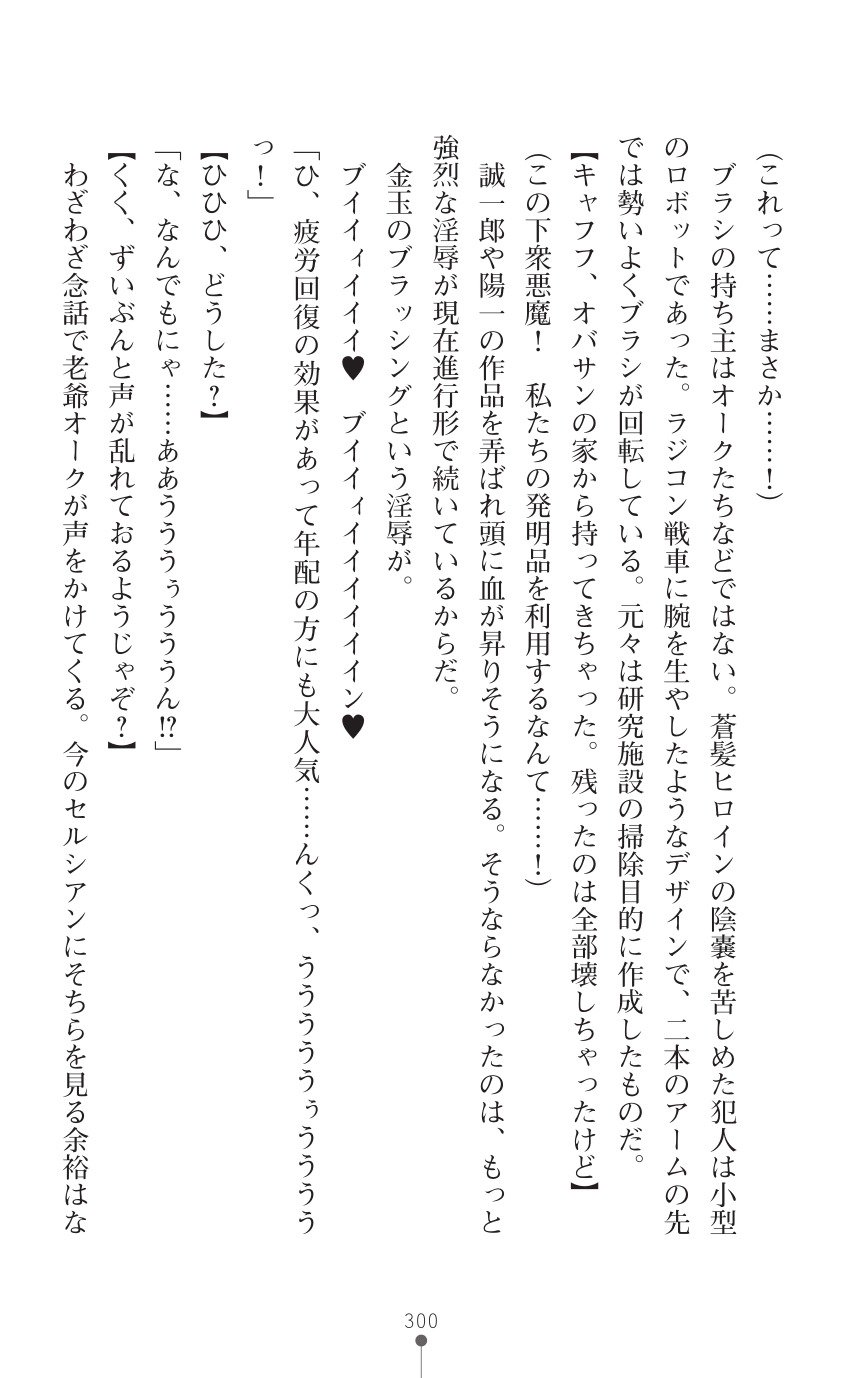 （これって……まさか……！）
　ブラシの持ち主はオークたちなどではない。蒼髪ヒロインの陰嚢を苦しめた犯人は小型
のロボットであった。ラジコン戦車に腕を生やしたようなデザインで、二本のアームの先
では勢いよくブラシが回転している。元々は研究施設の掃除目的に作成したものだ。
【キャフフ、オバサンの家から持ってきちゃった。残ったのは全部壊しちゃったけど】
（この下衆悪魔！　私たちの発明品を利用するなんて……！）
　誠一郎や陽一の作品を弄ばれ頭に血が昇りそうになる。そうならなかったのは、もっと
強烈な淫辱が現在進行形で続いているからだ。
　金玉のブラッシングという淫辱が。
　ブイイィイイイ♥　ブイイィイイイイイイン♥
「ひ、疲労回復の効果があって年配の方にも大人気……んくっ、うううううぅうううう
っ！」
【ひひひ、どうした？】
「な、なんでもにゃ……ああうううぅうううん!?」
【くく、ずいぶんと声が乱れておるようじゃぞ？】
　わざわざ念話で老爺オークが声をかけてくる。今のセルシアンにそちらを見る余裕はな
300